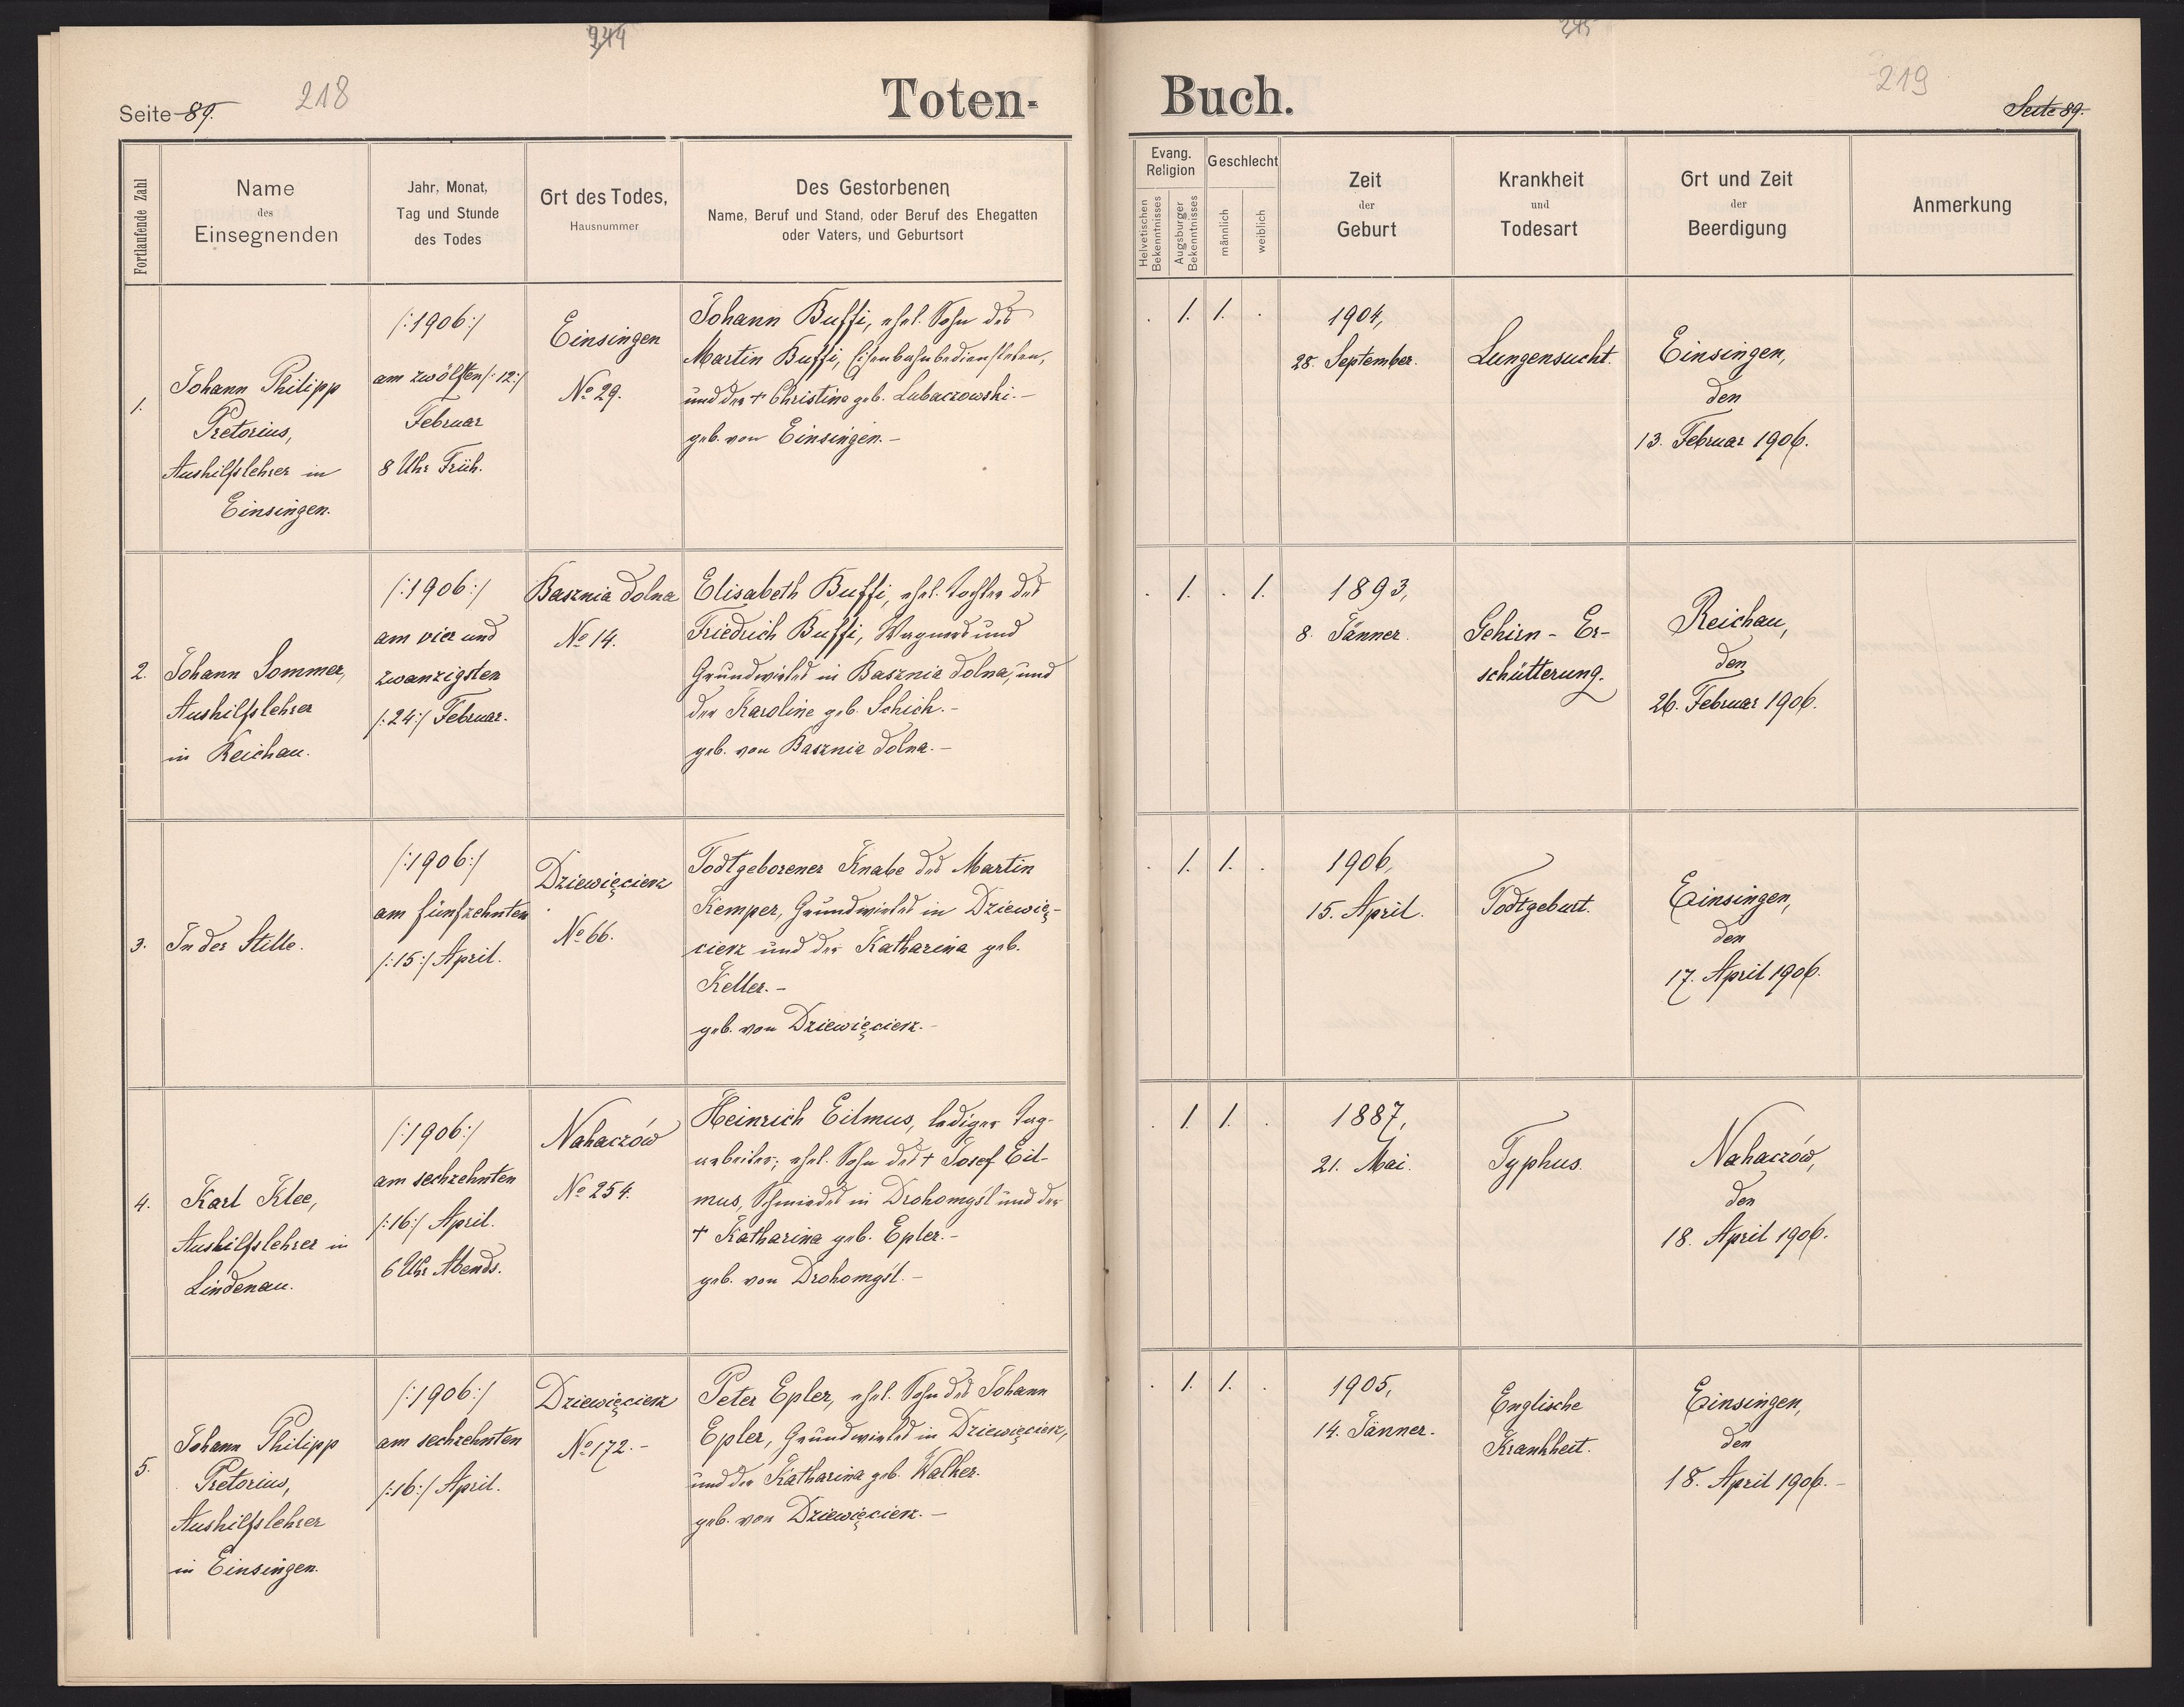 244
245
Seite 89.
218
Toten-
Buch.
219
Seite 89.
Fortlaufende Zahl
Name
des
Einsegnenden
Jahr, Monat,
Tag und Stunde
des Todes
Ort des Todes,
Hausnummer
Des Gestorbenen
Name, Beruf und Stand, oder Beruf des Ehegatten
oder Vaters, und Geburtsort
Evang.
Religion
Helvetischen
Bekenntnisses
Augsburger
Bekenntnisses
Geschlecht
männlich
weiblich
Zeit
der
Geburt
Krankheit
und
Todesart
Ort und Zeit
der
Beerdigung
Anmerkung
1.
Johann Philipp
Pretorius,
Aushilfslehrer in
Einsingen.
/:1906:/
am zwölften /:12:/
Februar
8 Uhr Früh.
Einsingen
No 29.
Johann Buffi, ehel. Sohn des
Martin Buffi, Eisenbahnbediensteten,
und der + Christine geb. Lubaczowski.-
geb. von Einsingen.-
. 1. 1. .
1904,
28. September.
Lungensucht.
Einsingen,
den
13. Februar 1906.
2.
Johann Sommer,
Aushilfslehrer
in Reichau.
/:1906:/
am vier und
zwanzigsten
/:24:/ Februar.
Basznia dolna
No 14.
Elisabeth Buffi, ehel. Tochter des
Friedrich Buffi, Wagners und
Grundwirtes in Basznia dolna, und
der Karoline geb. Schick.-
geb. von Basznia dolna.-
. 1. . 1.
1893,
8. Jänner.
Gehirn-Er-
schütterung.
Reichau,
den
26. Februar 1906.
3.
In der Stille.
/:1906:/
am fünfzehnten
/:15:/ April.
Dziewięcierz
No 66.
Todtgeborener Knabe des Martin
Kemper, Grundwirtes in Dziewię-
cierz und der Katharina geb.
Keller.-
geb. von Dziewięcierz.-
. 1. 1. .
1906,
15. April.
Todtgeburt.
Einsingen,
den
17. April 1906.
4.
Karl Klee,
Aushilfslehrer in
Lindenau.
/:1906:/
am sechzehnten
/:16:/ April.
6 Uhr Abends.
Nahaczów
No 254.
Heinrich Eilmus, lediger Tag-
arbeiter; ehel. Sohn des + Josef Eil-
mus, Schmiedes in Drohomyśl und der
+ Katharina geb. Epler.-
geb. von Drohomyśl.-
. 1. 1. .
1887,
21. Mai.
Typhus.
Nahaczów,
den
18. April 1906.
5.
Johann Philipp
Pretorius,
Aushilfslehrer
in Einsingen.
/:1906:/
am sechzehnten
/:16:/ April.
Dziewięcierz
No 172.-
Peter Epler, ehel. Sohn des Johann
Epler, Grundwirtes in Dziewięcierz,
und der Katharina geb. Walker.
geb. von Dziewięcierz.-
. 1. 1. .
1905,
14. Jänner.
Englische
Krankheit.
Einsingen,
den
18. April 1906.-